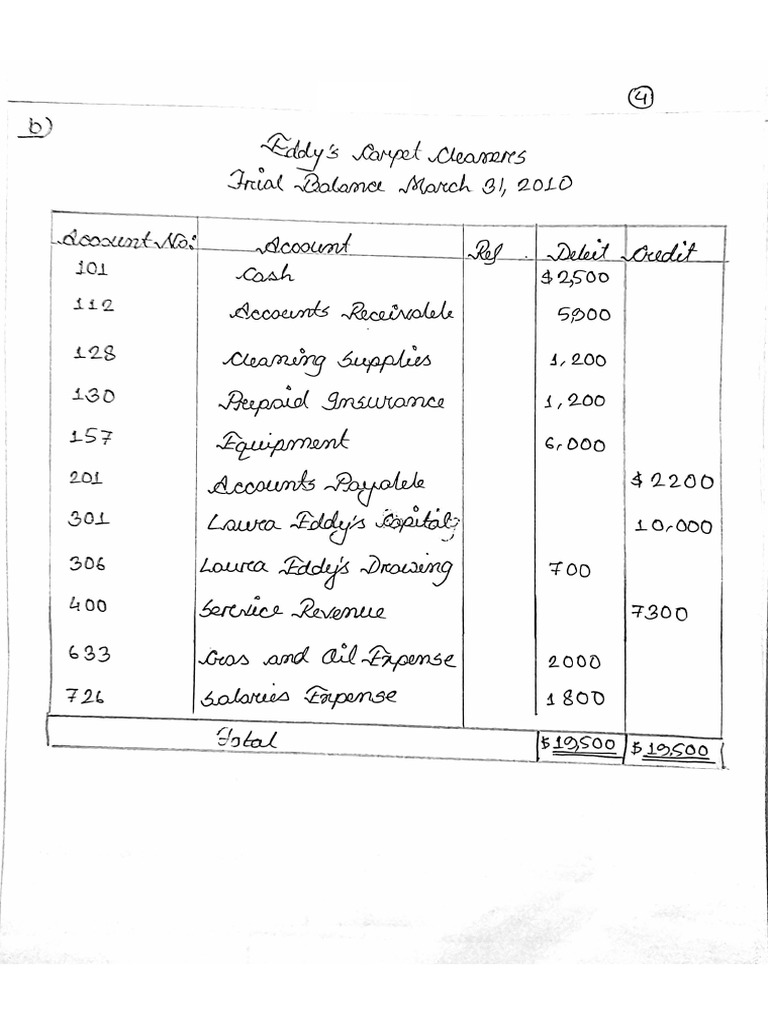 4
b)
Eddy's Carpet Cleaners
Trial Balance March 31, 2010
Account No: Account Ref. Debit Credit
101 Cash $2,500
112 Accounts Receivable
128 Cleaning Supplies 1,200
130 Prepaid Insurance 1,200
157 Equipment 6,000
201 Accounts Payable $2200
301 Laura Eddy's Capital 10,000
306 Laura Eddy's Drawing 700
400 Service Revenue 7300
633 Gas and Oil Expense 2000
726 Salaries Expense 1800
Total $19,500 $19,500